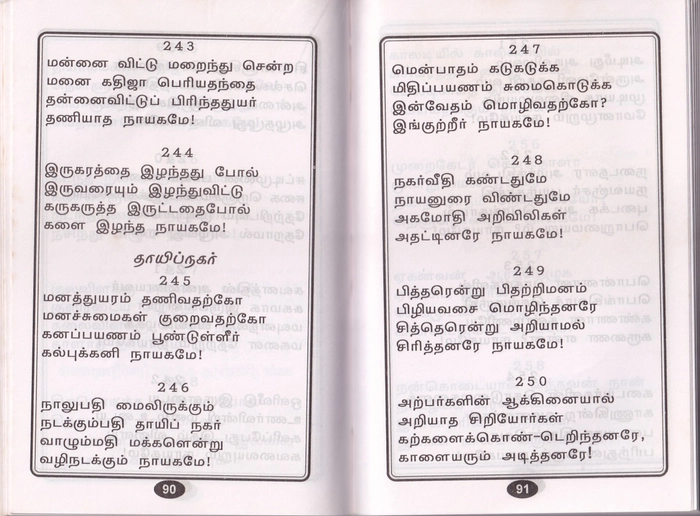 243
மன்னை விட்டு மறைந்து சென்ற
மனை கதிஜா பெரியதந்தை
தன்னைவிட்டுப் பிரிந்ததுயர்
தணியாத நாயகமே!
244
இருகரத்தை இழந்தது போல்
இருவரையும் இழந்துவிட்டு
கருகருத்த இருட்டதைபோல்
களை இழந்த நாயகமே!
தாயிப்நகர்
245
மனத்துயரம் தணிவதற்கோ
மனச்சுமைகள் குறைவதற்கோ
கனப்பயணம் பூண்டுள்ளீர்
கல்புக்கனி நாயகமே!
246
நாலுபதி மைலிருக்கும்
நடக்கும்பதி தாயிப் நகர்
வாழும்மதி மக்களென்று
வழிநடக்கும் நாயகமே!
90
247
மென்பாதம் கடுகடுக்க
மிதிப்பயணம் சுமைகொடுக்க
இன்வேதம் மொழிவதற்கோ?
இங்குற்றீர் நாயகமே!
248
நகர்வீதி கண்டதுமே
நாயனுரை விண்டதுமே
அகமோதி அறிவிலிகள்
அதட்டினரே நாயகமே!
249
பித்தரென்று பிதற்றிமனம்
பிழியவசை மொழிந்தனரே
சித்தெரென்று அறியாமல்
சிரித்தனரே நாயகமே!
250
அற்பர்களின் ஆக்கினையால்
அறியாத சிறியோர்கள்
கற்களைக்கொண்-டெறிந்தனரே,
காளையரும் அடித்தனரே!
91